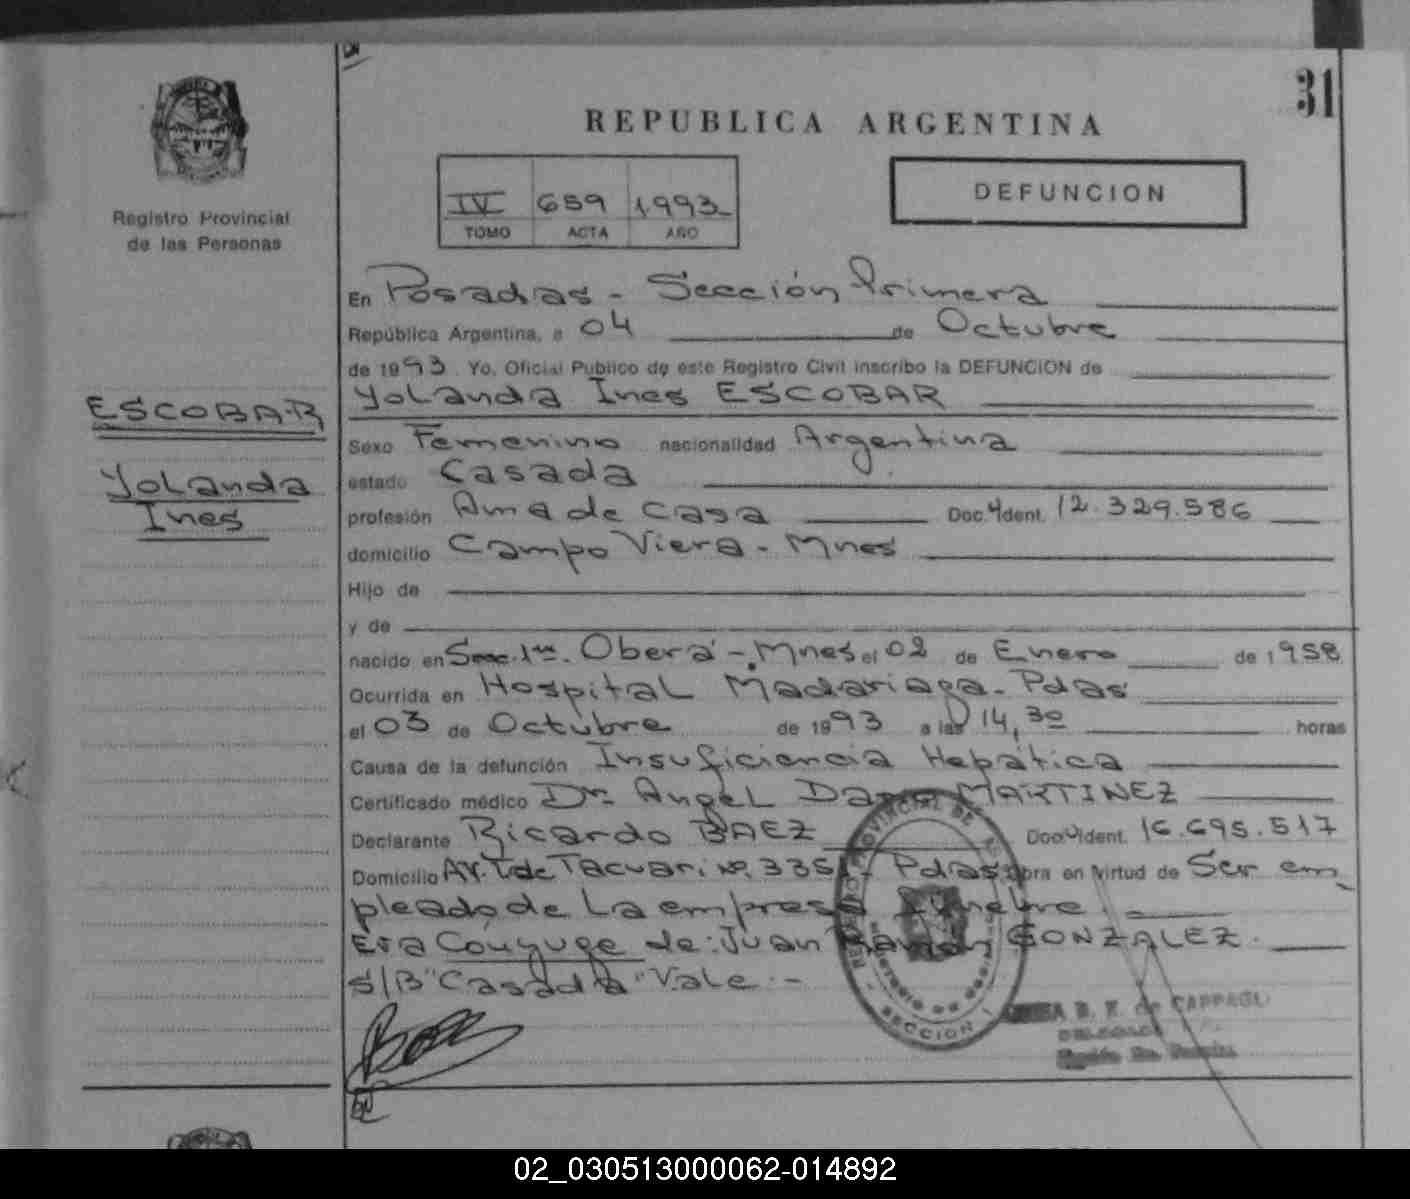 31
REPUBLICA ARGENTINA
DEFUNCION
IV 659 1993
TOMO ACTA AÑO
Registro Provincial
de las Personas
ESCOBAR
Yolanda
Ines
En Posadas - Sección Primera
República Argentina, a 04 de Octubre
de 1993 Yo, Oficial Publico de este Registro Civil inscribo la DEFUNCION de
Yolanda Ines ESCOBAR
Sexo Femenino nacionalidad Argentina
estado Casada
profesión Ama de Casa Doc. Ident. 12.329.586
domicilio Campo Viera - Mnes
Hijo de
y de
nacido en Secc. 1ra. Oberá - Mnes el 02 de Enero de 1958
Ocurrida en Hospital Madariaga - Pdas
el 03 de Octubre de 1993 a las 14,30 horas
Causa de la defunción Insuficiencia Hepática
Certificado médico Dr. Angel MARTINEZ
Declarante Ricardo BAEZ Doc. Ident. 16.695.517
Domicilio Av. Tacuari Nº 335 - Pdas obra en virtud de Ser em
pleado de La empresa fúnebre.
Era Cónyuge de: Juan Ramón GONZALEZ.
S/B "Casada" Vale. -
SECCION
de CAPPAGLI
02_030513000062-014892